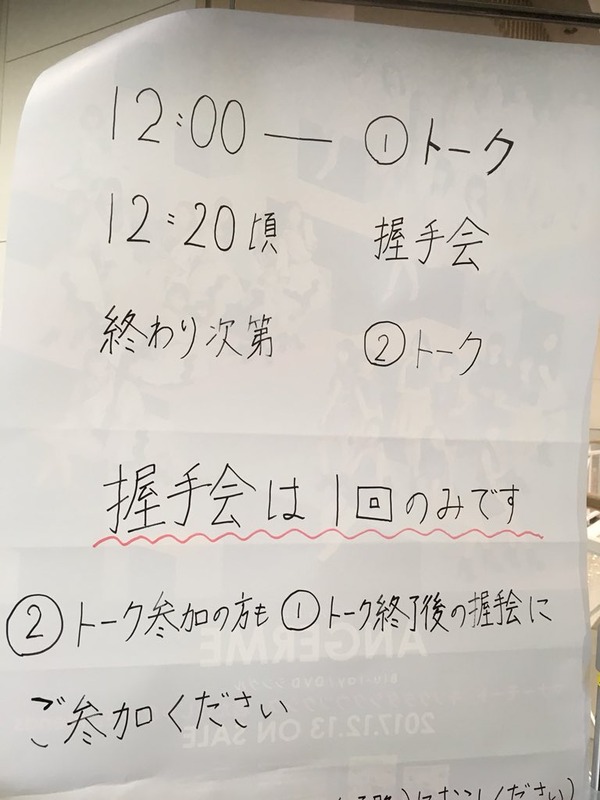 12:00 — ①トーク
12:20頃 握手会
終わり次第 ②トーク
握手会は1回のみです
②トーク参加の方も①トーク終了後の握手会に
ご参加ください
ANGERME
Blu-ray/DVD
2017.12.13 ON SALE
ください)